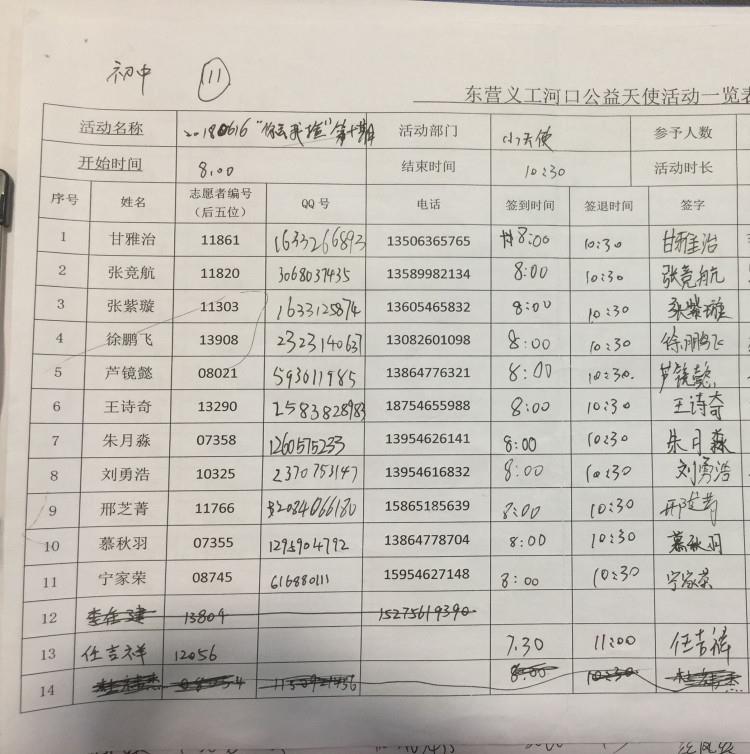 初中 11
东营义工河口公益天使活动一览表
活动名称 20180616 第十期 活动部门 小天使 参予人数
开始时间 8:00 结束时间 10:30 活动时长
序号 姓名 志愿者编号 QQ号 电话 签到时间 签退时间 签字
（后五位）
1 甘雅治 11861 1633266893 13506365765 8:00 10:30 甘雅治
2 张竞航 11820 3068037435 13589982134 8:00 10:30 张竞航
3 张紫璇 11303 1633125874 13605465832 8:00 10:30 张紫璇
4 徐鹏飞 13908 2323140637 13082601098 8:00 10:30 徐鹏飞
5 芦镜懿 08021 593011985 13864776321 8:00 10:30. 芦镜懿
6 王诗奇 13290 2583828983 18754655988 8:00 10:30 王诗奇
7 朱月淼 07358 1260575233 13954626141 8:00 10:30 朱月淼
8 刘勇浩 10325 2370753147 13954616832 8:00 10:30 刘勇浩
9 邢芝菁 11766 32084066180 15865185639 8:00 10:30 邢芝菁
10 慕秋羽 07355 1295904792 13864778704 8:00 10:30 慕秋羽
11 宁家荣 08745 616880111 15954627148 8:00 10:30 宁家荣
12 13804 15275619390
13 任吉祥 12056 7.30 11:00 任吉祥
14 8:00 10:30